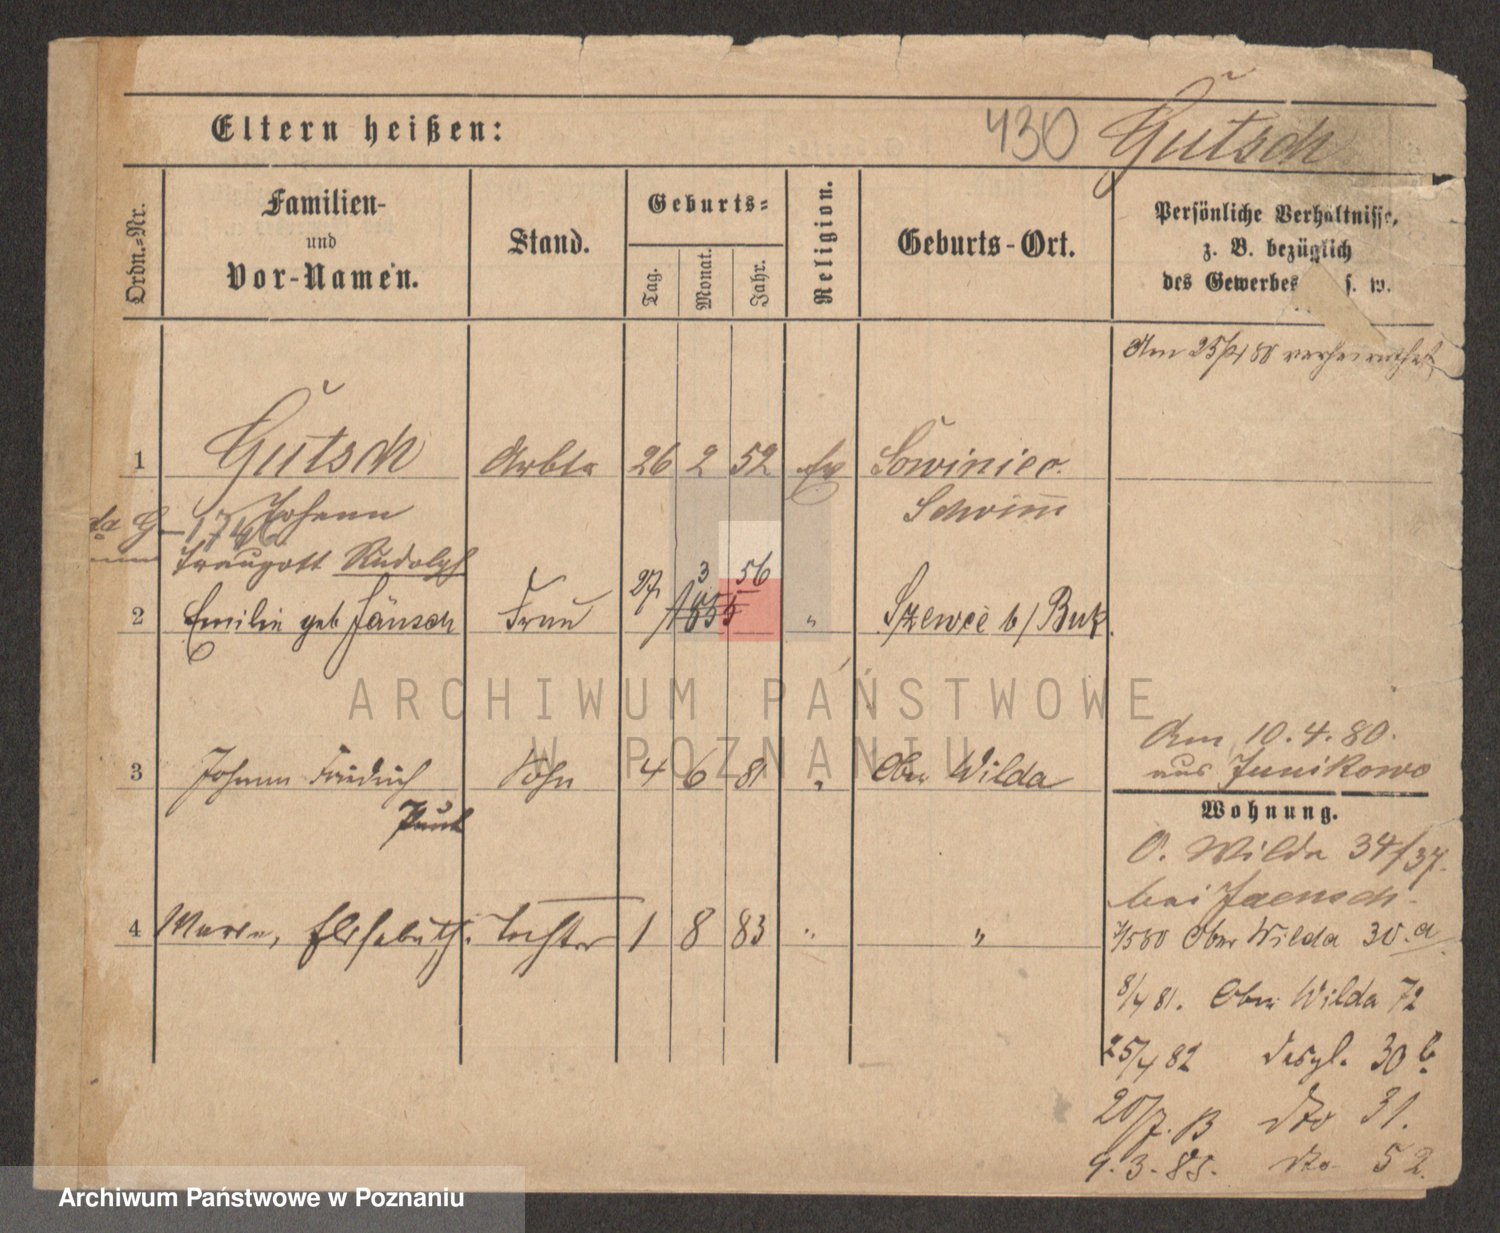 Eltern heißen:
430 Gutsch
Ordn.-Nr.
Familien-
und
Vor-Namen.
Stand.
Geburts-
Tag.
Monat.
Jahr.
Religion.
Geburts-Ort.
Persönliche Verhältnisse,
z. B. bezüglich
des Gewerbes s. w.
Am 25/4 80 verheirathet
1 Gutsch Arbtr 26 2 52 Ev Sowiniec
Johann Schrimm
1746
Traugott Rudolph
27 3 56
2 Emilie geb Jänsch Frau 1855 " Szewce b/ Buk.
Am 10.4.80.
aus Junikowo
3 Johann Friedrich Sohn 4 6 81 " Ober Wilda
Paul
Wohnung.
O. Wilda 34/37.
bei Jaensch.
4 Maria, Elisabeth. Tochter 1 8 83 " "
7/5 80 Ober Wilda 30.a
8/4 81. Ober Wilda 72
25/4 82 desgl. 30 b.
20/7. 83 dto 31.
9.3.85. dto 52.
ARCHIWUM PAŃSTWOWE
W POZNANIU
Archiwum Państwowe w Poznaniu